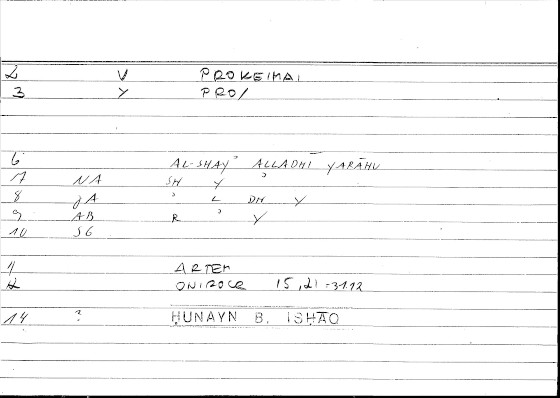 2 V PROKEIMAI
3 Y PRO/
6 AL-SHAYʾ ALLADHĪ YARĀHU
7 NA SH Y ʾ
8 JA ʾ L DH Y
9 AB R ʾ Y
10 SG
11 ARTEM
12 ONIROCR 15,21 = 31.12
14 ? ḤUNAYN B. ISḤĀQ